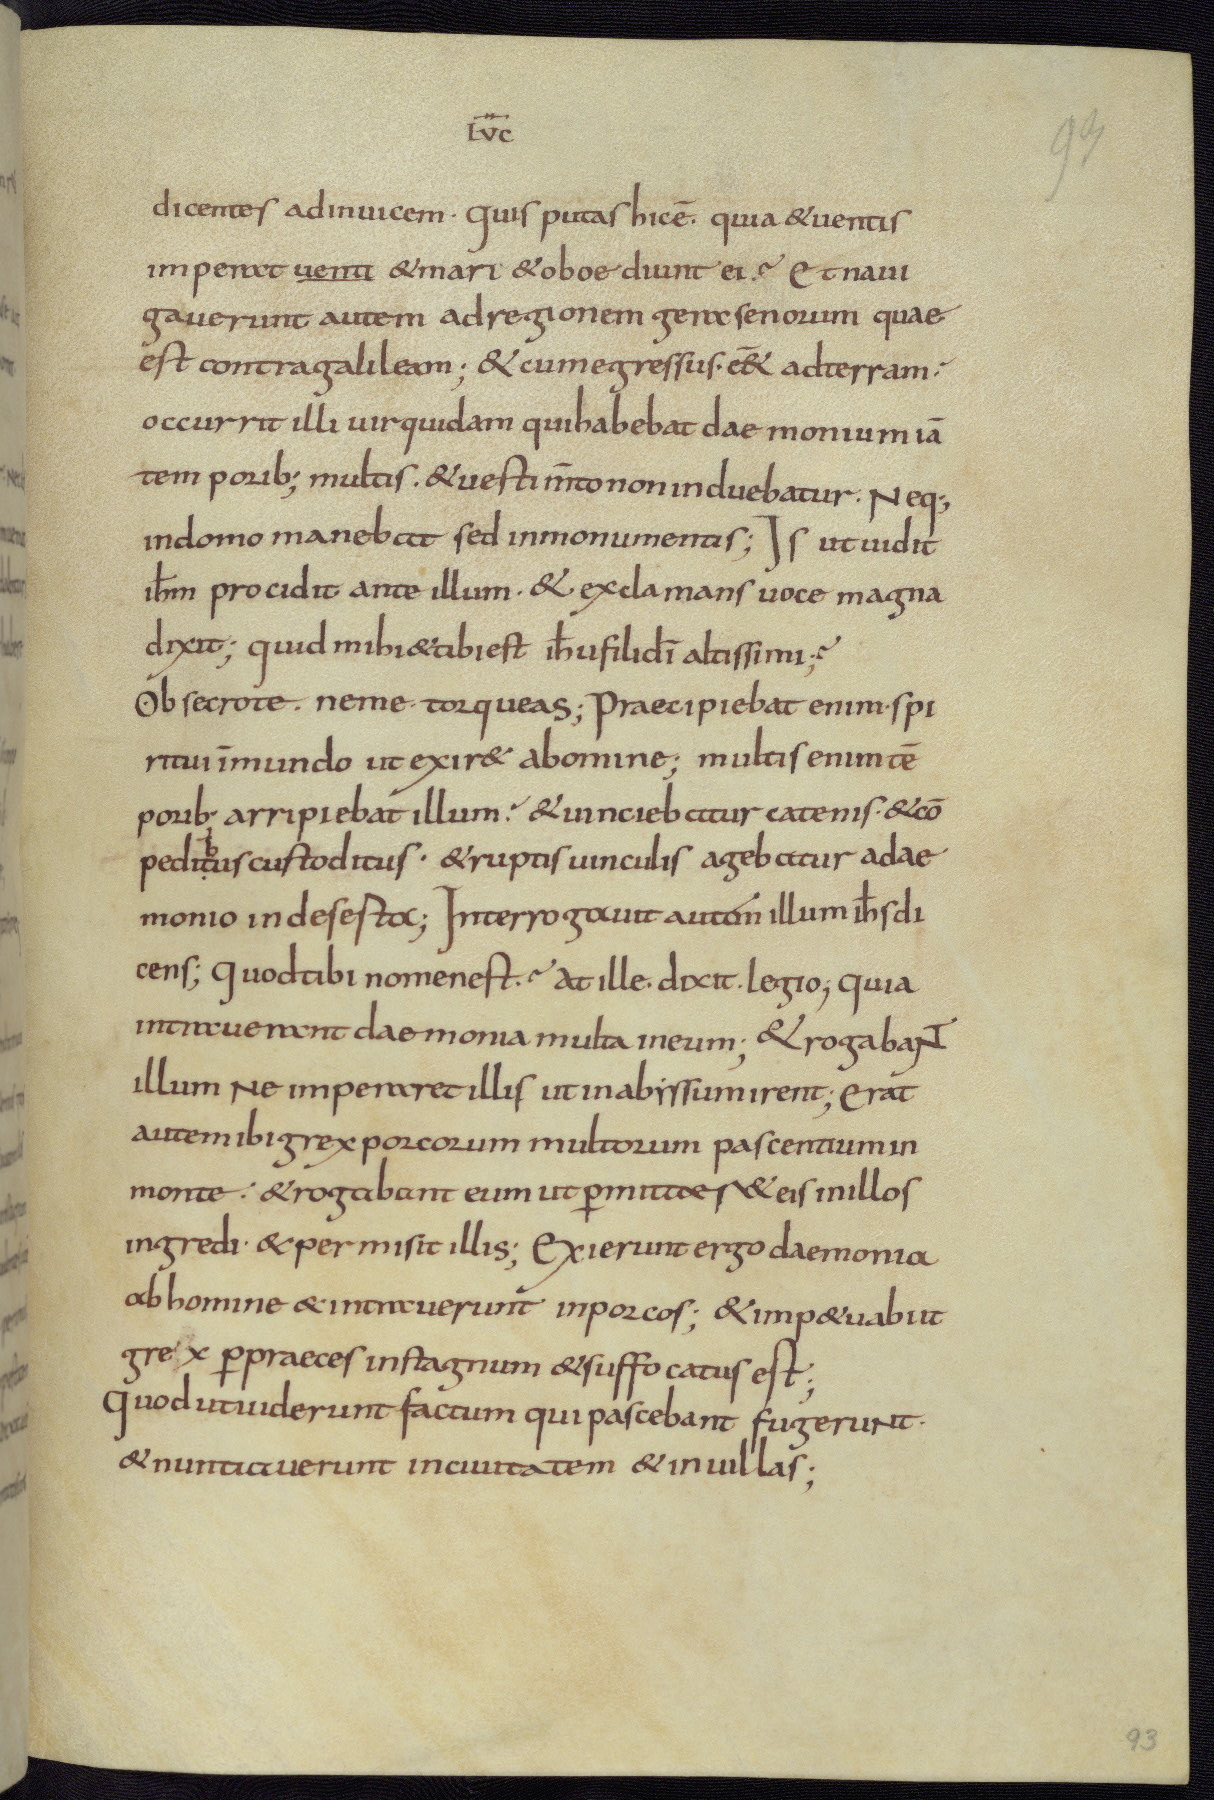 LṼC
93
dicentes adinuicem · Quis putas hicē · quia &uentis
imperat uenti &mari &oboediunt ei ·? Et naui
gauerunt autem adregionem gerasenorum quae
est contragalileam ; & cumegressus · eēt& adterram ·
occurrit illi uirquidam quihabebat daemoniumiā
temporib; multis . &uestim̄tononinduebatur · Neq;
indomo manebat sed inmonumentis ; Is ut uidit
ih̄m procidit ante illum · & exclamans uoce magna
dixit ; quid mihi&tibiest ih̄ufilidī altissimi ;?
Obsecrote · neme torqueas ; Praecipiebat enim · spi
ritui īmundo ut exir& abomine ; multisenimtē
porib; arripiebat illum · &uinciebatur catenis · &cō
peditbuscustoditus · &ruptisuinculis agebatur adae
monio indesesta ; Interrogauit autem illumih̄sdi
cens ; Quodtibi nomenest ·? at ille · dixit · legio ; quia
intrauerant daemonia multa ineum ; &rogabaNT
illum Ne imperaret illis ut inabyssumirent ; Erat
autemibigrex porcorum multorum pascentiumin
monte · &rogabant eum ut p̱mittes & eis inillos
ingredi · &permisit illis ; Exierunt ergo daemonia
abhomine & intrauerunt inporcos ; & imp&uabiit
grex p̱praeces instagnum &suffocatus est ;
Quodutuiderunt factum qui pascebant fugeruNt ·
&nuntiauerunt inciuitatem &inuillas ;
93